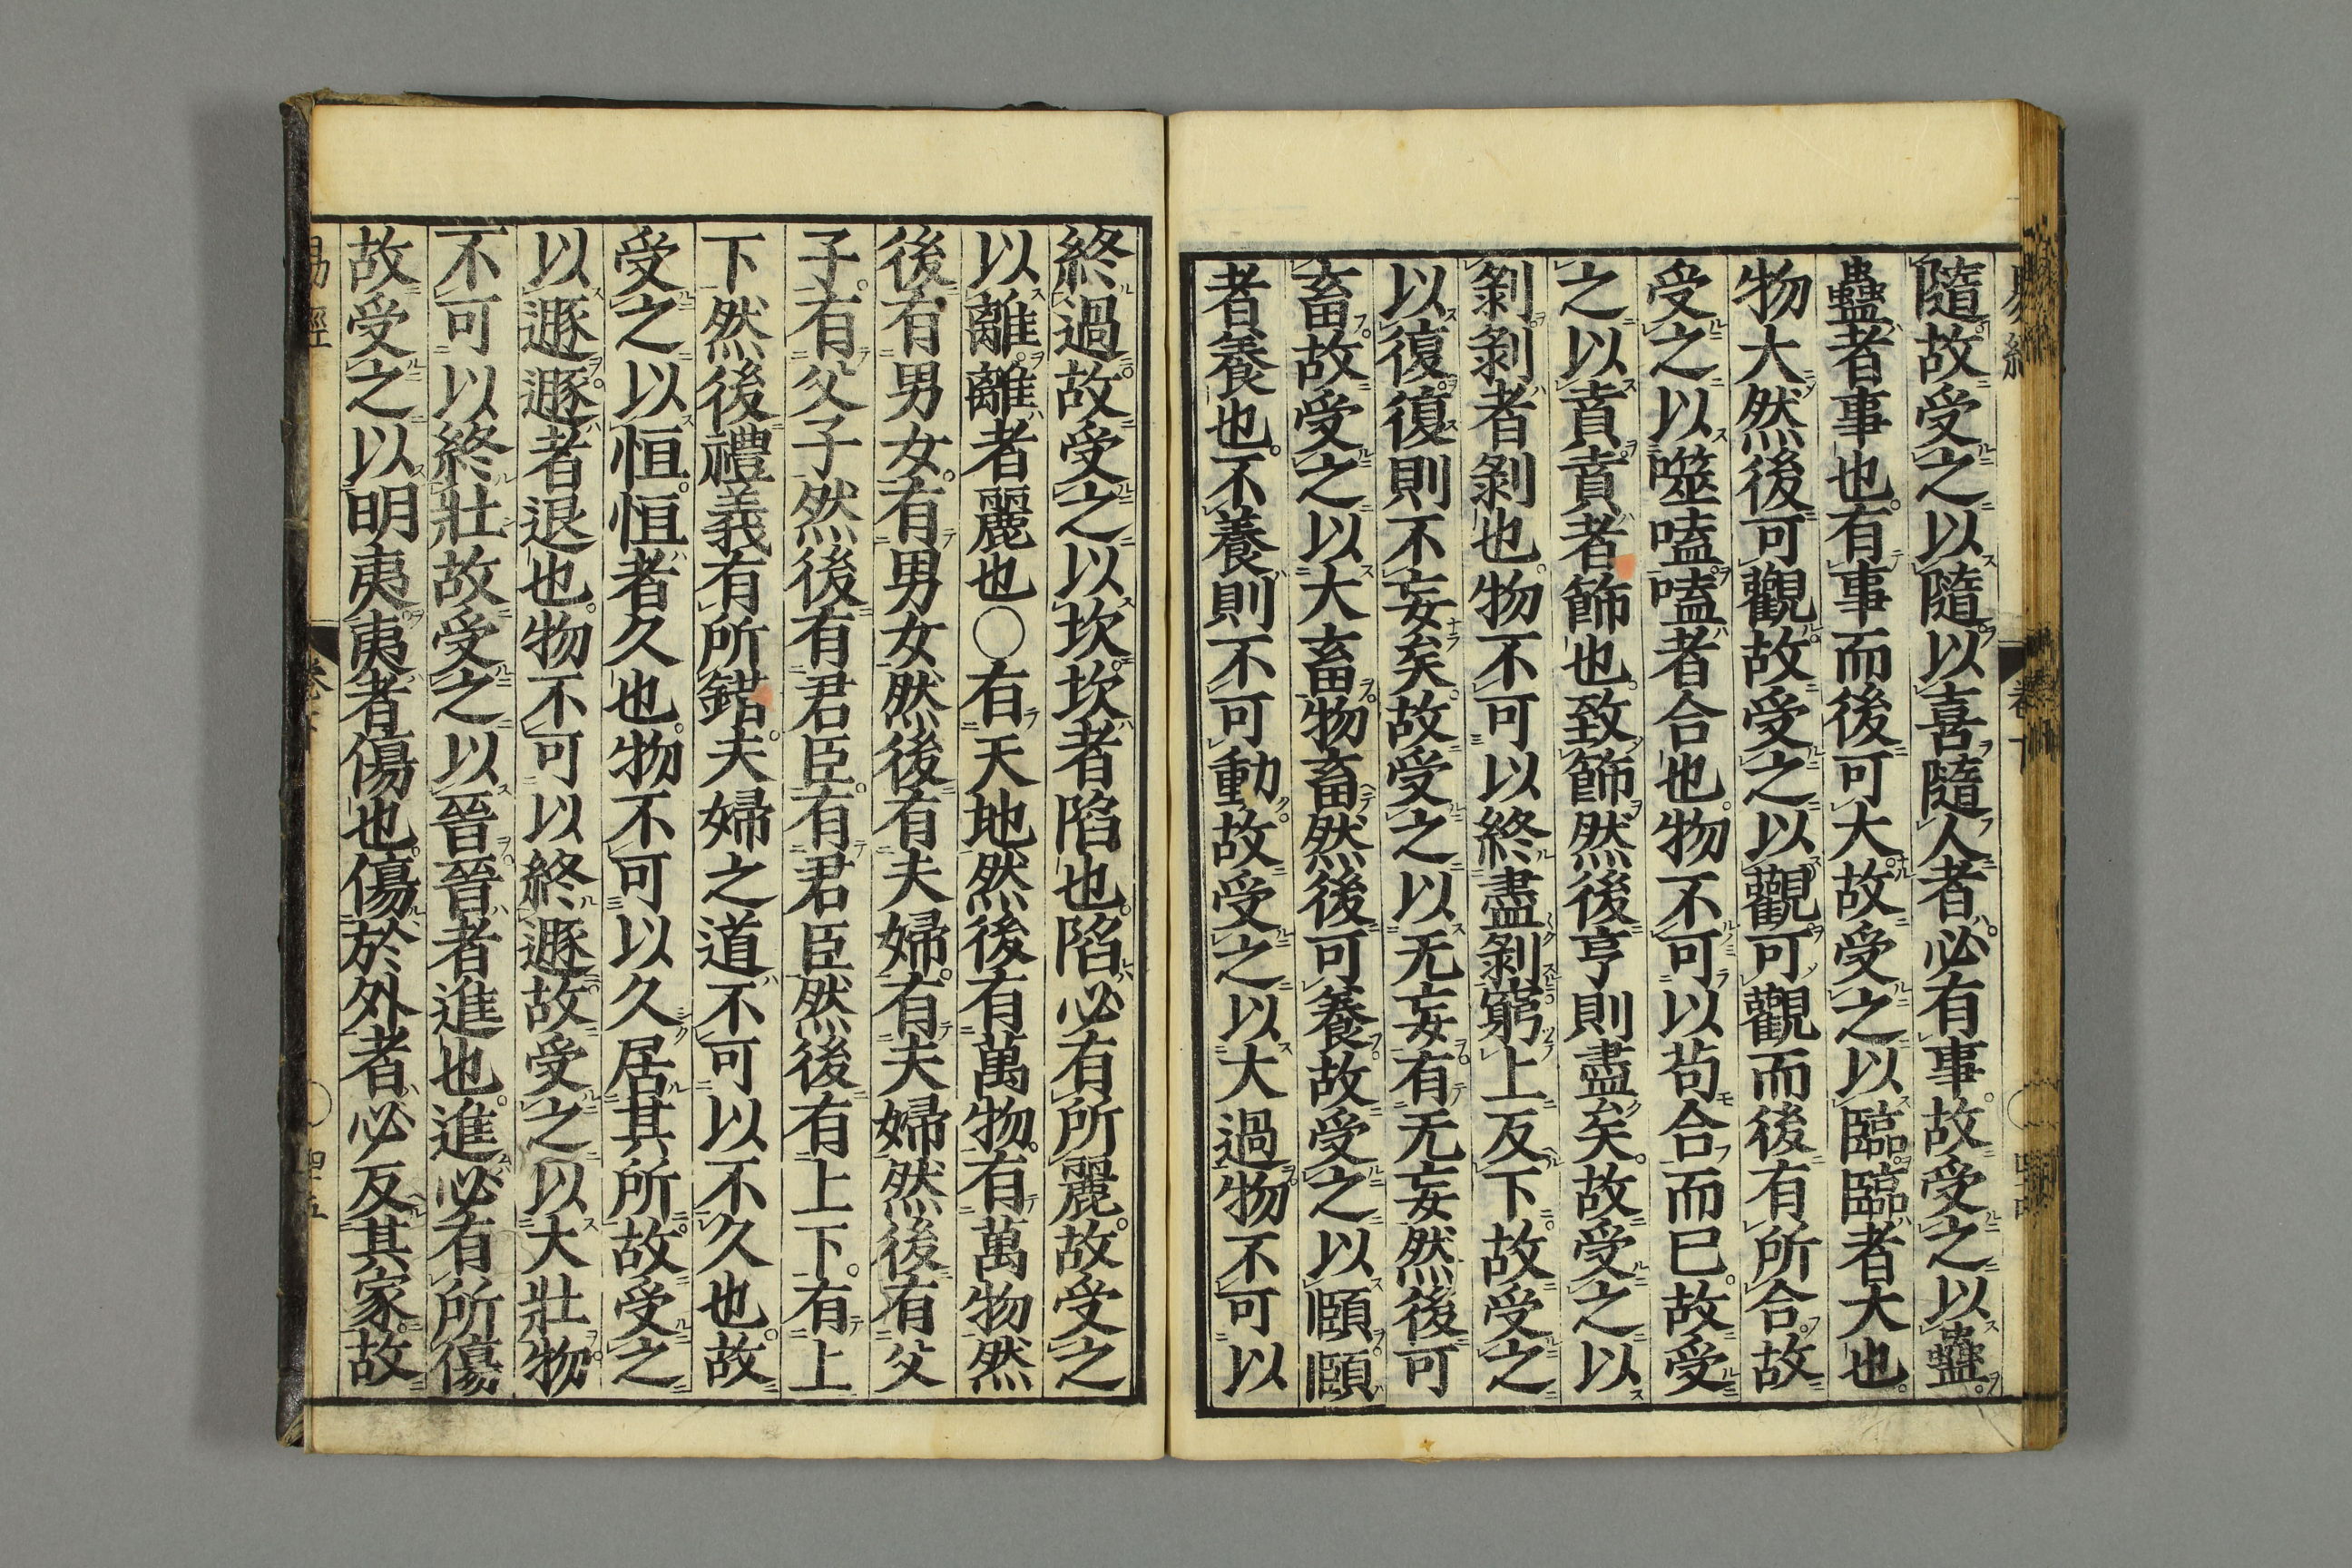 隨故受之以隨以喜隨人者必有事故受之以蠱
蠱者事也有事而後可大故受之以臨臨者大也
物大然後可觀故受之以觀可觀而後有所合故
受之以噬嗑嗑者合也物不可以茍合而已故受
之以賁賁者飾也致飾然後亨則盡矣故受之以
剝剝者剝也物不可以終盡剝窮上反下故受之
以復復則不妄矣故受之以无妄有无妄然後可
畜故受之以大畜物畜然後可養故受之以頤頤
者養也不養則不可動故受之以大過物不可以
終過故受之以坎坎者陷也陷必有所麗故受之
以離離者麗也○有天地然後有萬物有萬物然
後有男女有男女然後有夫婦有夫婦然後有父
子有父子然後有君臣有君臣然後有上下有上
下然後禮義有所錯夫婦之道不可以不久也故
受之以恒恒者久也物不可以久居其所故受之
以遯遯者退也物不可以終遯故受之以大壯物
不可以終壯故受之以晉晉者進也進必有所傷
故受之以明夷夷者傷也傷於外者必反其家故
易經